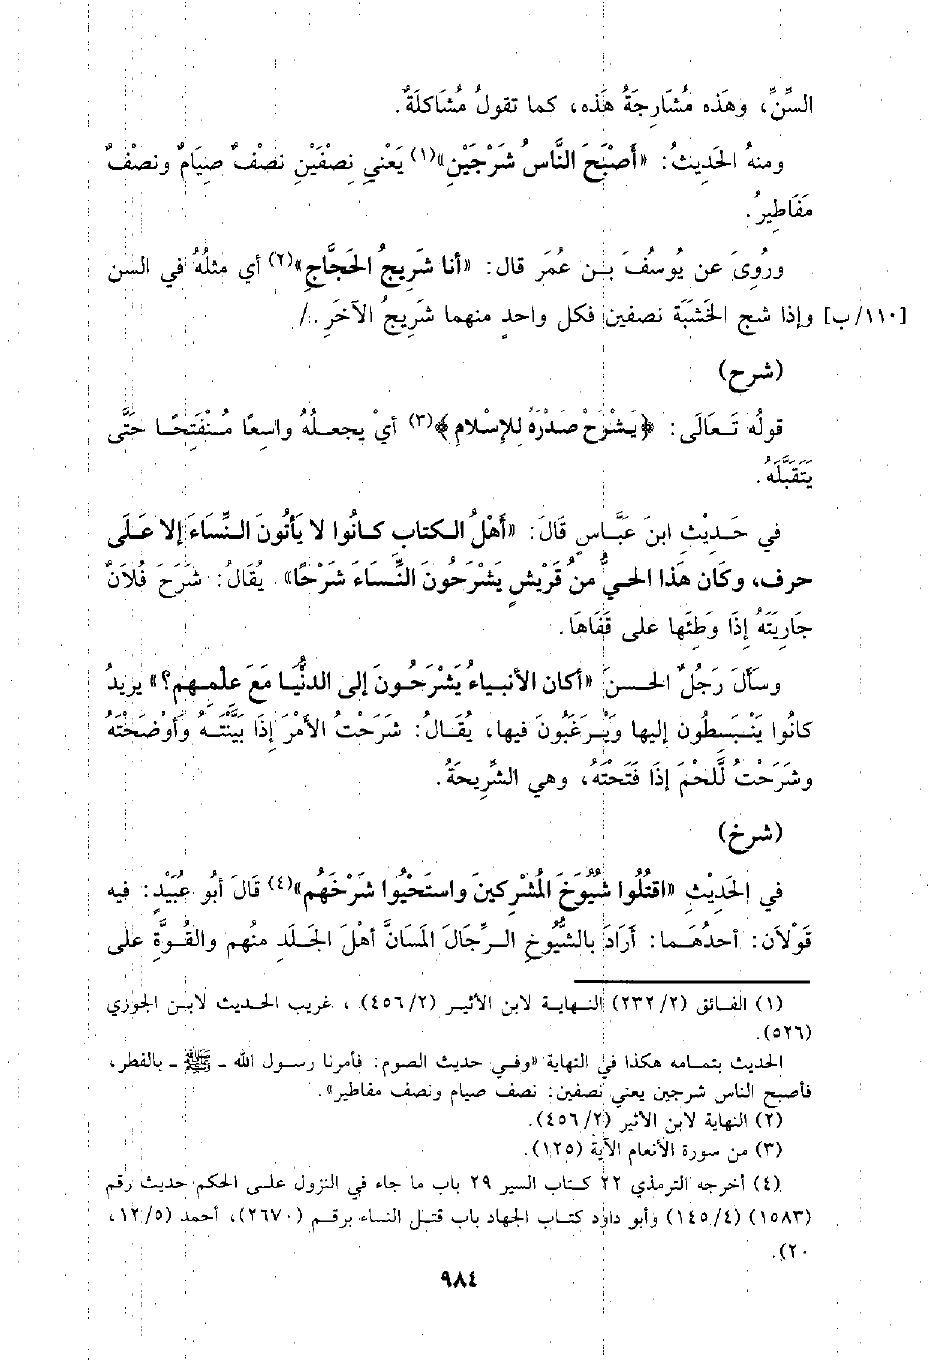 السِّنِّ، وهَذه مُشَارجَةُ هَذه، كما تقولُ مُشَاكلَةٌ.
ومنهُ الحَديثُ: «أَصْبَحَ النَّاسُ شَرْجَيْنِ»(١) يَعْنيِ نِصْفَيْنِ نصْفٌ صيَامٌ ونصْفٌ
مَفَاطيرُ.
ورُوِىَ عن يُوسُفَ بـن عُمَرَ قال: «أنا شَريجُ الحَجَّاجِ»(٢) أي مثلُهُ في السن
[١١٠/ب] وإذا شج الخَشَبَة نصفين فكل واحدٍ منهما شَريجُ الآخَرِ./
(شرح)
قولُه تَـعَالَى: ﴿يَشْرَحْ صَدْرَهُ لِلإِسْلامِ﴾(٣) أيْ يجعلـهُ واسِعًا مـُنْفَتِحًـا حَتَّى
يَتَقَبَّلَهُ.
في حَـدِيْثِ ابنِ عَبَّـاسٍ قَالَ: «أهْلُ الـكتَابِ كـانُوا لا يَأتُونَ الـنِّسَاءَ إلا عَـلَى
حرف، وكَان هَذا الحيُّ منُ قُرَيْشٍ يَشْرَحُونَ النِّسَاءَ شَرْحًا». يُقَالُ: شَرَحَ فُلاَنٌ
جَاريَتَهُ إذَا وَطئَها على قَفَاهَا.
وسَأَلَ رَجُلٌ الحـسنَ «أكان الأنبـياءُ يَشْرَحُـونَ إلى الدنُّيَـا مَعَ عِلمـهِم؟» يريدُ
كانُوا يَنْبَسطُون إليها ويُـرَغَبُونَ فيها، يُقَـالُ: شَرَحْتُ الأمْرَ إذَا بَيَّنْتَـهُ وأوْضَحْتَهُ
وشَرَحْتُ اللَّحْمَ إذَا فَتَحْتَهُ، وهي الشَّرِيحَةُ.
(شرخ)
في الحَديْثِ «اقتُلُوا شُيُوخَ المُشْركينَ واستَحْيُوا شَرْخَهُم»(٤) قَالَ أبُو عُبَيْدٍ: فيه
قَوْلاَن: أحدُهَـما: أرَادَ بالشُّيُوخِ الـرِّجَالَ المَسَانَّ أهْلَ الجَـلَد منهُم والقُـوَّة على
(١) الفـائق (٢/٢٣٢) النـهايـة لابن الأثيـر (٢/٤٥٦) ، غريب الحـديث لابـن الجوزي
(٥٢٦).
الحديث بتمـامه هكذا في النهاية «وفـي حديث الصوم: فأمرنا رسـول الله ـ ﷺ ـ بالفطر،
فأصبح الناس شرجين يعني نصفين: نصف صيام ونصف مفاطير».
(٢) النهاية لابن الأثير (٢/٤٥٦).
(٣) من سورة الأنعام الآية (١٢٥).
(٤) أخرجه الترمذي ٢٢ كـتاب السير ٢٩ باب ما جاء في النزول علـى الحكم حديث رقم
(١٥٨٣) (٤/١٤٥) وأبو داود كتـاب الجهاد باب قتـل النساء برقـم (٢٦٧٠)، أحمد (٥/١٢،
٢٠).
٩٨٤